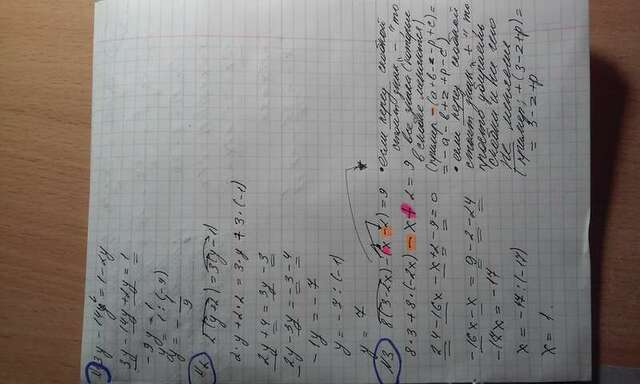 №1 3y - 14y = 1 - 2y
3y - 14y + 2y = 1
-9y = 1
y = 1 : (-9)
y = - 1/9
№2
2(y+2) = 3(y-1)
2·y + 2·2 = 3·y + 3·(-1)
2y + 4 = 3y - 3
2y - 3y = -3 - 4
-1y = -7
y = -7 : (-1)
y = 7
№3 8(3-2x) - (x - 2) = 9
8·3 + 8·(-2x) - x + 2 = 9
24 - 16x - x + 2 - 9 = 0
-16x - x = 9 - 2 - 24
-17x = -17
x = -17 : (-17)
x = 1.
• если перед скобкой
стоит знак „-" то
все знаки (которые
в скобке меняются)
(пример -(a+b-z-p+c) =
= -a-b+z+p-c)
• если перед скобкой
стоит знак „+" то
просто убираем
скобки и ни чего
не меняем
(пример; +(3-z+p) =
= 3-z+p